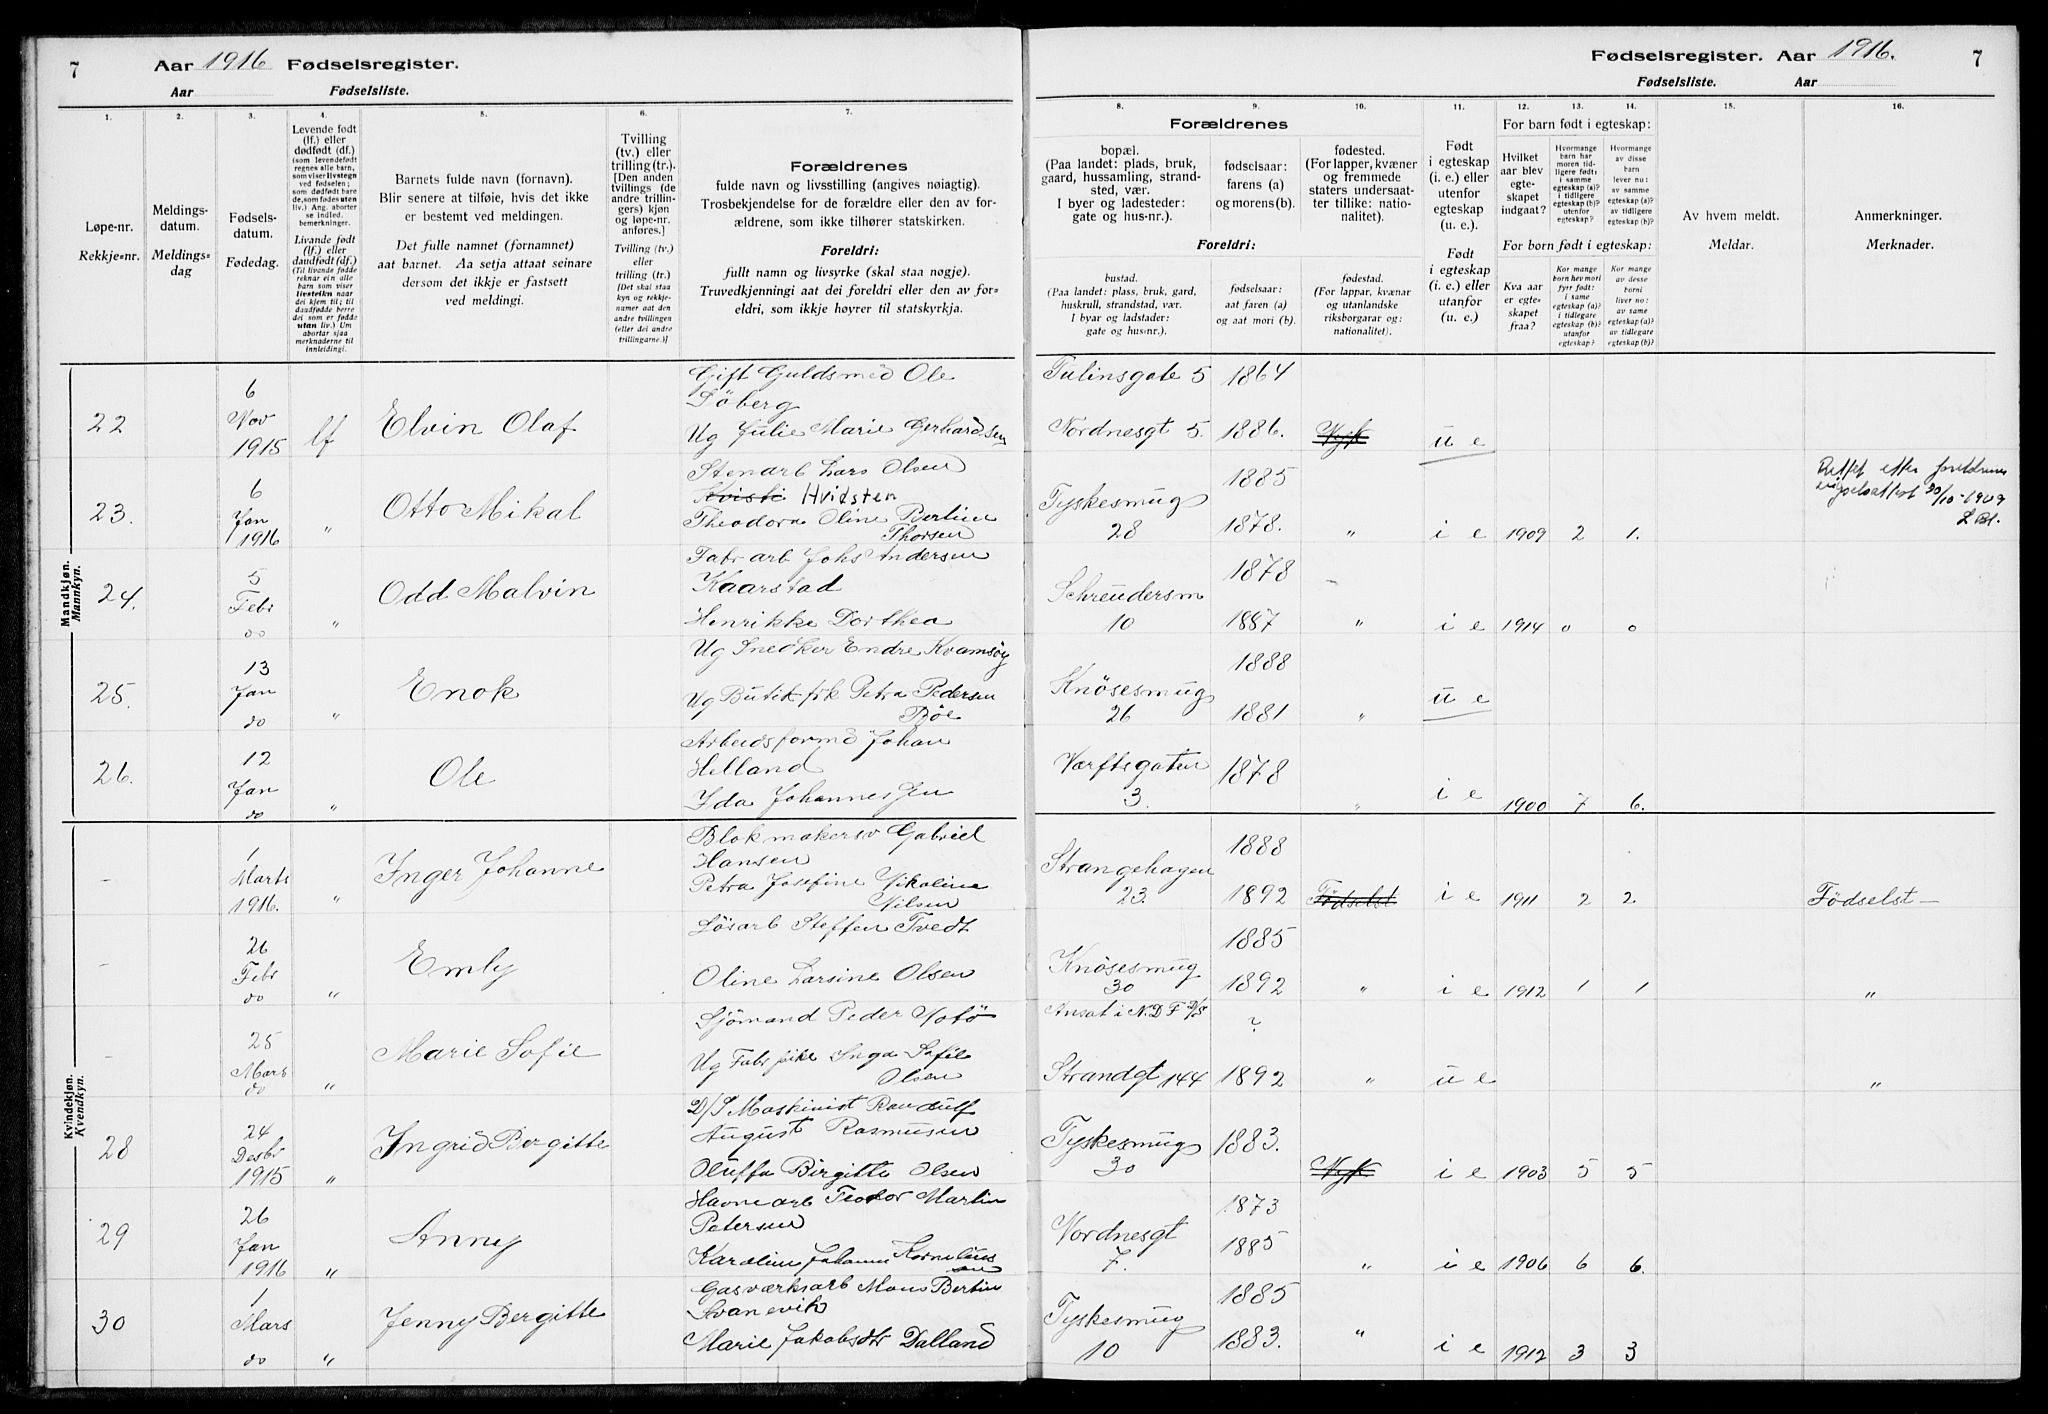 7 Aar 1916 Fødselsregister.
Aar Fødselsliste.
Fødselsregister. Aar 1916. 7
Fødselsliste. Aar
1. 2. 3. 4. 5. 6. 7.
8. 9. 10. 11. 12. 13. 14. 15. 16.
Løpe-nr.
Rekkje=nr.
Meldings-
datum.
Meldings=
dag
Fødsels-
datum.
Fødedag.
Levende født
(lf.) eller
dødfødt (df.)
(som levendefødt
regnes alle barn,
som viser livstegn
ved fødselen;
som dødfødt bare
de, som fødes uten
liv.) Ang. aborter
se indled.
bemerkninger.
Livande født
(lf.) eller
daudfødt (df.)
(Til livande fødde
reknar ein alle
barn som viser
livsteikn naar
dei kjem til; til
daudfødde berre
dei som er fødde
utan liv.) Um
abortar sjaa
merknaderne til
innleidingi.
Barnets fulde navn (fornavn).
Blir senere at tilføie, hvis det ikke
er bestemt ved meldingen.
Det fulle namnet (fornamnet)
aat barnet. Aa setja attaat seinare
dersom det ikkje er fastsett
ved meldingi.
Tvilling
(tv.) eller
trilling (tr.).
[Den anden
tvillings (de
andre trillin-
gers) kjøn
og løpe-nr.
anføres.]
Tvilling (tv.)
eller
trilling (tr.)
[Det skal staa
kyn og rekkje-
numer aat den
andre tvillingen
(eller dei andre
trillingarne.)]
Forældrenes
fulde navn og livsstilling (angives nøiagtig).
Trosbekjendelse for de forældre eller den av for-
ældrene, som ikke tilhører statskirken.
Foreldri:
fullt namn og livsyrke (skal staa nøgje).
Truvedkjenningi aat dei foreldri eller den av for=
eldri, som ikkje høyrer til statskyrkja.
Forældrenes
bopæl.
(Paa landet: plads, bruk,
gaard, hussamling, strand-
sted, vær.
I byer og ladesteder:
gate og hus-nr.).
Foreldri:
bustad.
(Paa landet: plass, bruk, gard,
huskrull, strandstad, vær.
I byar og ladstader:
gate og hus=nr.).
fødselsaar:
farens (a)
og morens (b).
fødselsaar:
aat faren (a)
og aat mori (b).
fødested.
(For lapper, kvæner
og fremmede
staters undersaat-
ter tillike: natio-
nalitet).
fødestad.
(For lappar, kvænar
og utanlandske
riksborgarar og:
nationalitet).
Født
i egteskap
(i. e.) eller
utenfor
egteskap
(u. e.).
Født
i egteskap
(i. e.) eller
utanfor
egteskap
(u. e.)
For barn født i egteskap:
Hvilket
aar blev
egte-
skapet
indgaat?
Hvormange
barn har
moren tid-
ligere født:
i samme
egteskap (a)?
i tidligere
egteskap (b)?
utenfor
egteskap?
Hvormange
av disse
barn
lever nu:
av samme
egteskap (a)?
av tidligere
egteskap (b)?
For born født i egteskap:
Kva aar
er egte=
skapet
fraa?
Kor mange
born hev mori
fyrr født:
i same
egteskap (a)?
i tidlegare
egteskap (b)?
utanfor
egteskap?
Kor mange
av desse
borni
liver no:
av same
egteskap (a)?
av tidlegare
egteskap (b)?
Av hvem meldt.
Meldar.
Anmerkninger.
Merknader.
Mandkjøn.
Mannkyn.
22 6 Nov 1915 lf Elvin Olaf
Gift Guldsmed Ole
Söberg
Ug Julie Marie Gerhardsen
Tulinsgate 5 1864
Nordnesgt 5. 1886. Nyk u e
23. 6 Jan 1916 " Otto Mikal
Stenarb Lars Olsen
Hvidsten
Theodora Oline Bertine
Thorsen
Tyskesmug 28 1885
1878. " i e 1909 2 1.
Rettet efter foreldrenes
vigselsattest 30/10-1909
24. 5 Febr do " Odd Malvin
Fabr arb Johs Andersen
Kaarstad
Henrikke Dorthea
Schreudersm 10 1878
1887 " i e 1914 0 0
25. 13 Jan do " Enok
Ug Snedker Endre Kvamsöy
Ug Butikfrk Petra Pedersen
Böe
Knösesmug 26 1888
1881 " u e
26. 12 Jan do " Ole
Arbeidsformd Johan
Helland
Ida Johannessen
Værftsgaten 3. 1878 " i e 1900 7 6.
Kvindekjøn.
Kvendkyn.
- 1 Marts 1916. " Inger Johanne
Blokmakersv Gabriel
Hansen
Petra Josefine Nikoline
Nilsen
Strangehagen 23. 1888
1892 Födselst i e 1911 2 2. Födselst —
- 26 Febr do " Emly
Lösarb Steffen Tvedt
Oline Larsine Olsen
Knösesmug 30 1885
1892 " i e 1912 1 1 "
- 25 Mars do " Marie Sofie
Sjömand Peder Notö
Ug Fabr pike Inga Sofie
Olsen
Ansat i N.D.F D/S ?
Strandgt 144 1892 " u e "
28 24 Desbr 1915 " Ingrid Bergitte
D/S Maskinist Randulf
August Rasmusen
Oluffa Birgitte Olsen
Tyskesmug 30 1883. Nyk i e 1903 5 5
29 26 Jan 1916 " Anny
Havnearb Teodor Martin
Petersen
Karoline Johanne Kornelius
sen
Nordnesgt 7. 1873
1885 " i e 1906 6 6.
30 1 Mars do " Jenny Bergitte
Gasværksarb Mons Bertin
Svanevik
Marie Jakobsdtr Dalland
Tyskesmug 10 1885
1883. " i e 1912 3 3